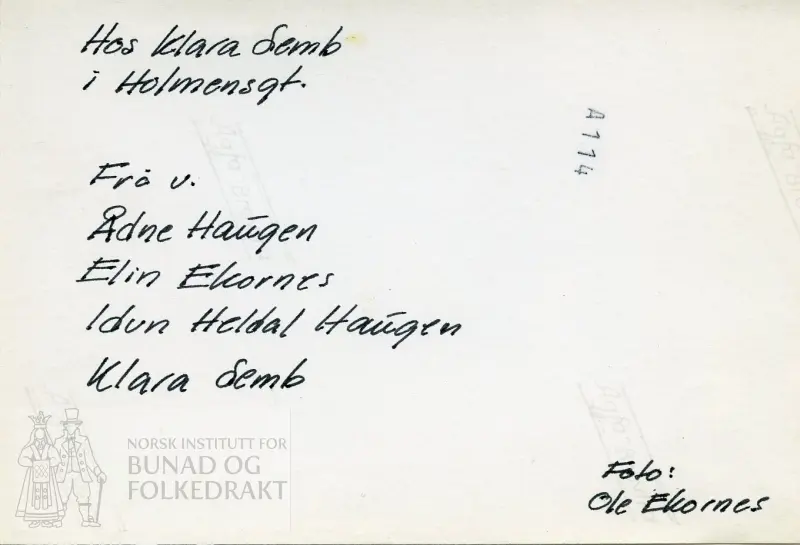 Hos Klara Semb
i Holmensgt.
A114
Frå v.
Ådne Haugen
Elin Ekornes
Idun Heldal Haugen
Klara Semb
NORSK INSTITUTT FOR
BUNAD OG
FOLKEDRAKT
Foto:
Ole Ekornes